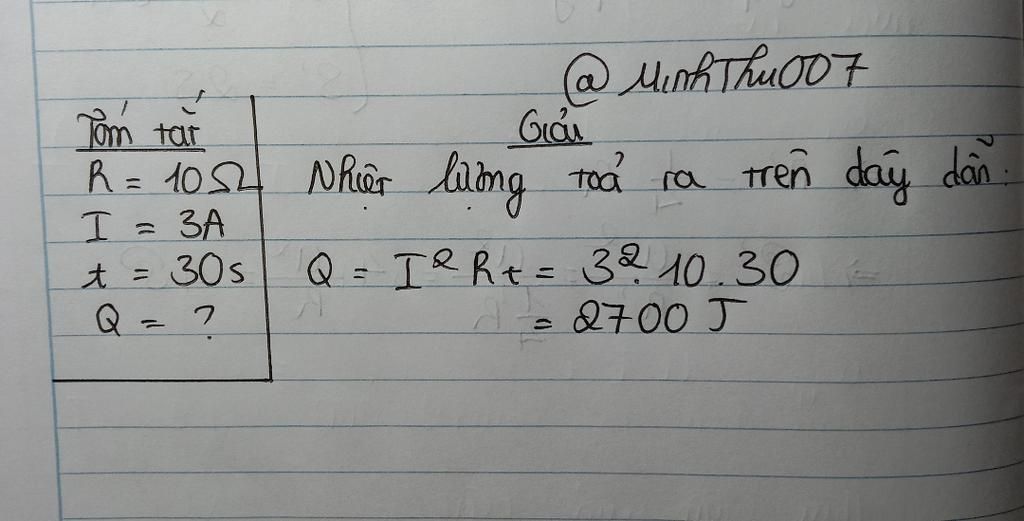 @MinhThu007
Tóm tắt
R = 10Ω
I = 3A
t = 30s
Q = ?
Giải
Nhiệt lượng toả ra trên dây dẫn:
Q = I² R t = 3². 10 . 30
= 2700 J